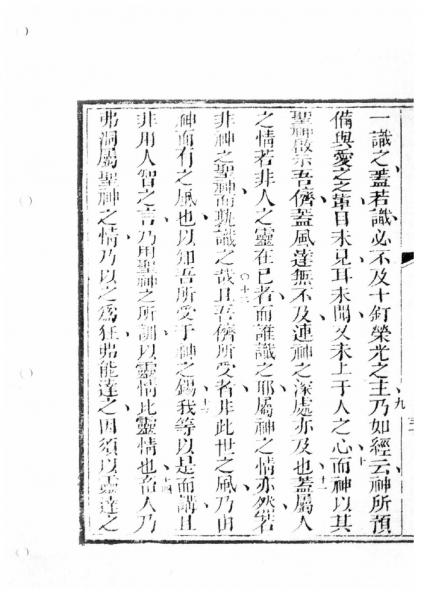 一識之蓋若識必不及十釘榮光之主乃如經云神所預
備與愛之之輩目未見耳未聞又未上于人之心而神以其
聖神啟示吾儕蓋風達無不及連神之深處亦及也蓋屬人
之情若非人之靈在己者而誰識之耶屬神之情亦然若
非神之聖神而孰識之哉且吾儕所受者非此世之風乃由
神而有之風也以知吾所受于神之錫我等以是而講且
非用人智之言乃用聖神之所訓以靈情比靈情也畜人乃
弗洞屬聖神之情乃以之為狂弗能達之因須以靈達之
九
十
十一
十二
十三
十四